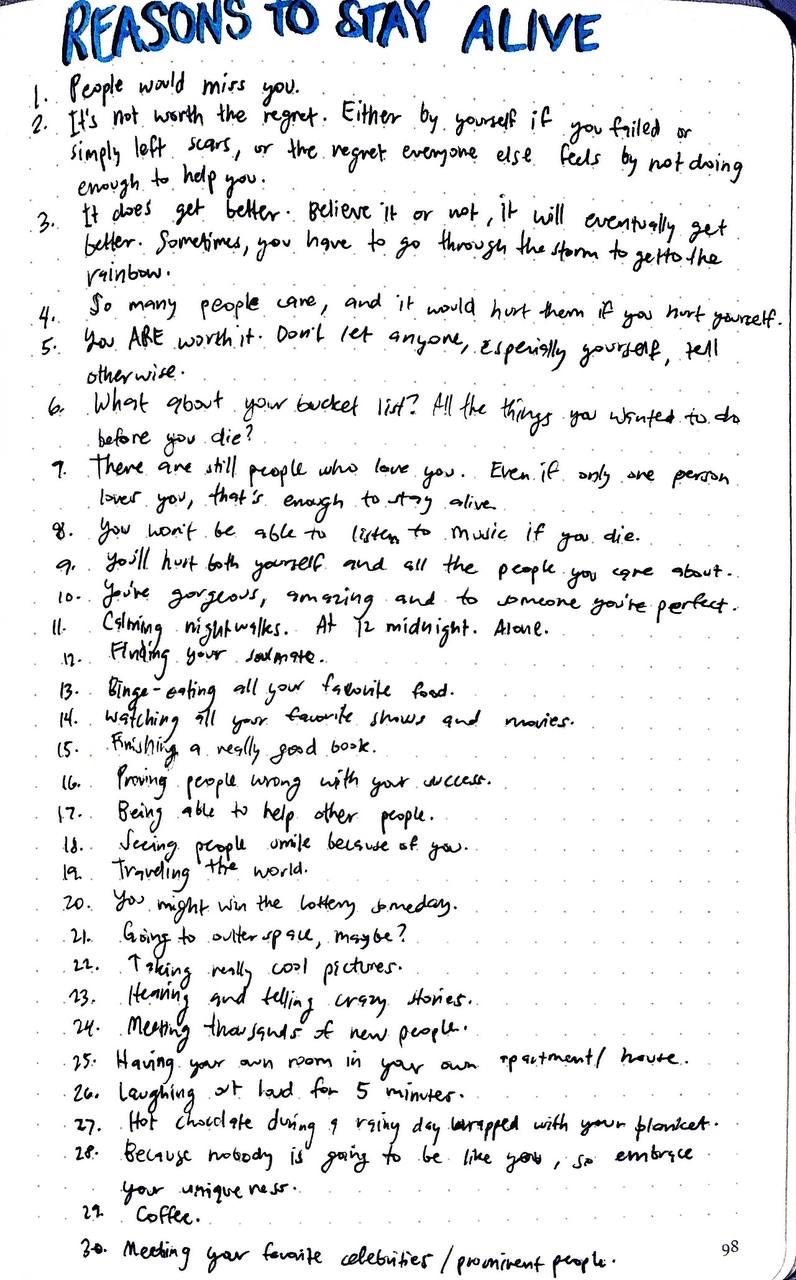 REASONS TO STAY ALIVE
1. People would miss you.
2. It's not worth the regret. Either by yourself if you failed or
simply left scars, or the regret everyone else feels by not doing
enough to help you.
3. It does get better. Believe it or not, it will eventually get
better. Sometimes, you have to go through the storm to get to the
rainbow.
4. So many people care, and it would hurt them if you hurt yourself.
5. You ARE worth it. Don't let anyone, especially yourself, tell
otherwise.
6. What about your bucket list? All the things you wanted to do
before you die?
7. There are still people who love you. Even if only one person
loves you, that's enough to stay alive.
8. You won't be able to listen to music if you die.
9. You'll hurt both yourself and all the people you care about.
10. You're gorgeous, amazing and to someone you're perfect.
11. Calming nightwalks. At 12 midnight. Alone.
12. Finding your soulmate.
13. Binge-eating all your favorite food.
14. Watching all your favorite shows and movies.
15. Finishing a really good book.
16. Proving people wrong with your success.
17. Being able to help other people.
18. Seeing people smile because of you.
19. Traveling the world.
20. You might win the lottery someday.
21. Going to outer space, maybe?
22. Taking really cool pictures.
23. Hearing and telling crazy stories.
24. Meeting thousands of new people.
25. Having your own room in your own apartment/house.
26. Laughing out loud for 5 minutes.
27. Hot chocolate during a rainy day wrapped with your blanket.
28. Because nobody is going to be like you, so embrace
your uniqueness.
29. Coffee.
30. Meeting your favorite celebrities/prominent people.
98